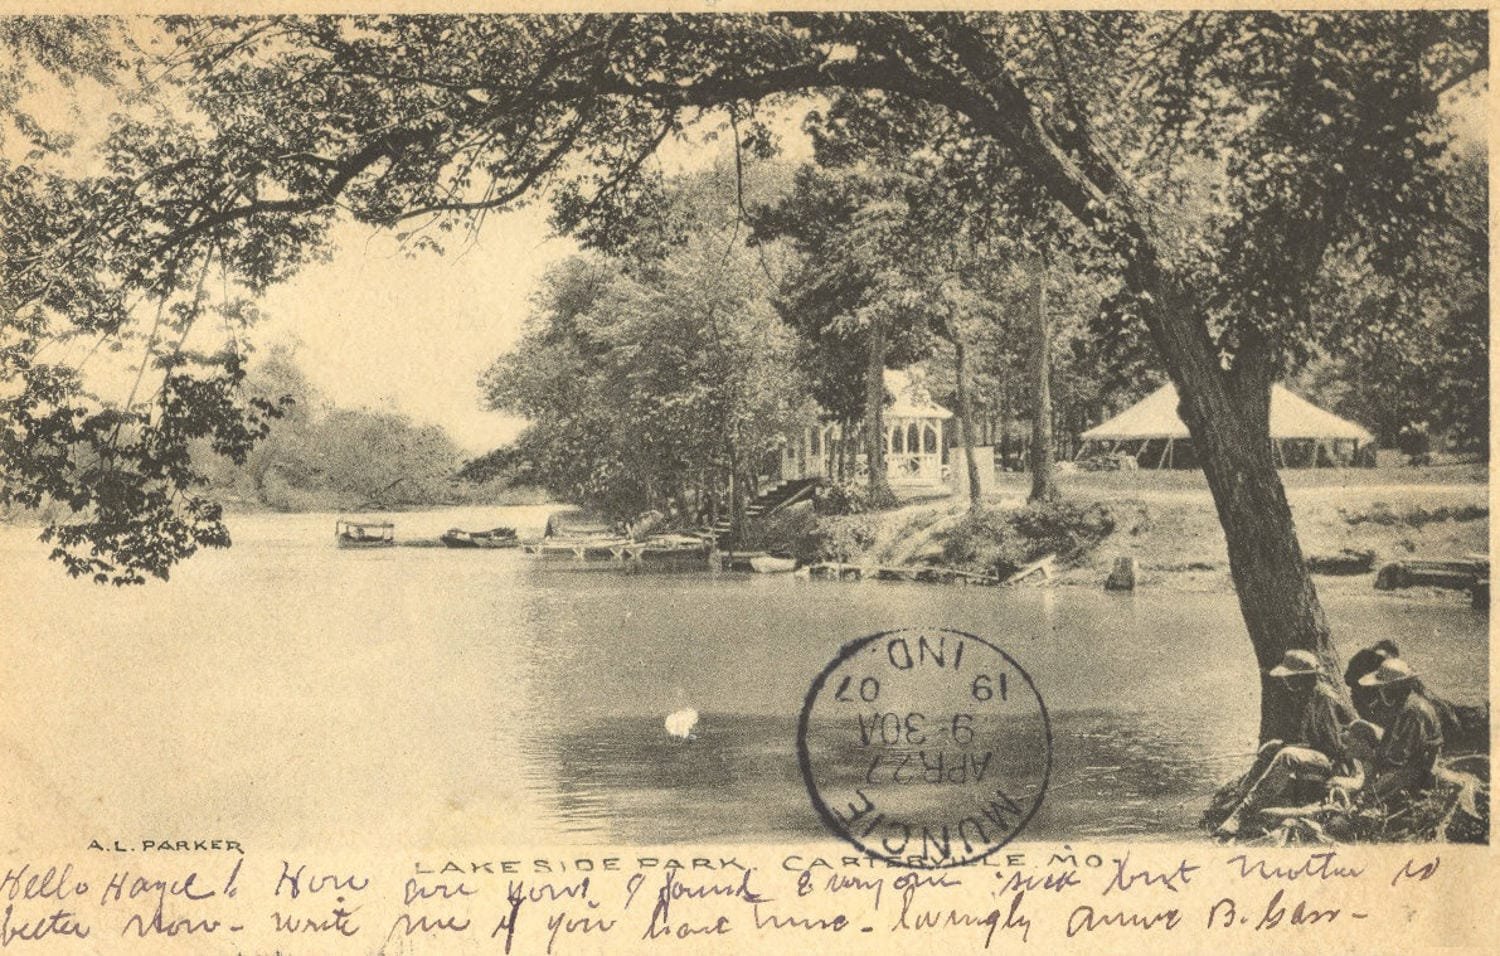 MUNCIE
APR 27
9-30A
19 07
IND.
A.L. PARKER
LAKE SIDE PARK. CARTERVILLE. MO.
Hello Hazel! How are you? I found everyone sick but Mother is
better now - write me if you have time - lovingly Anne B.